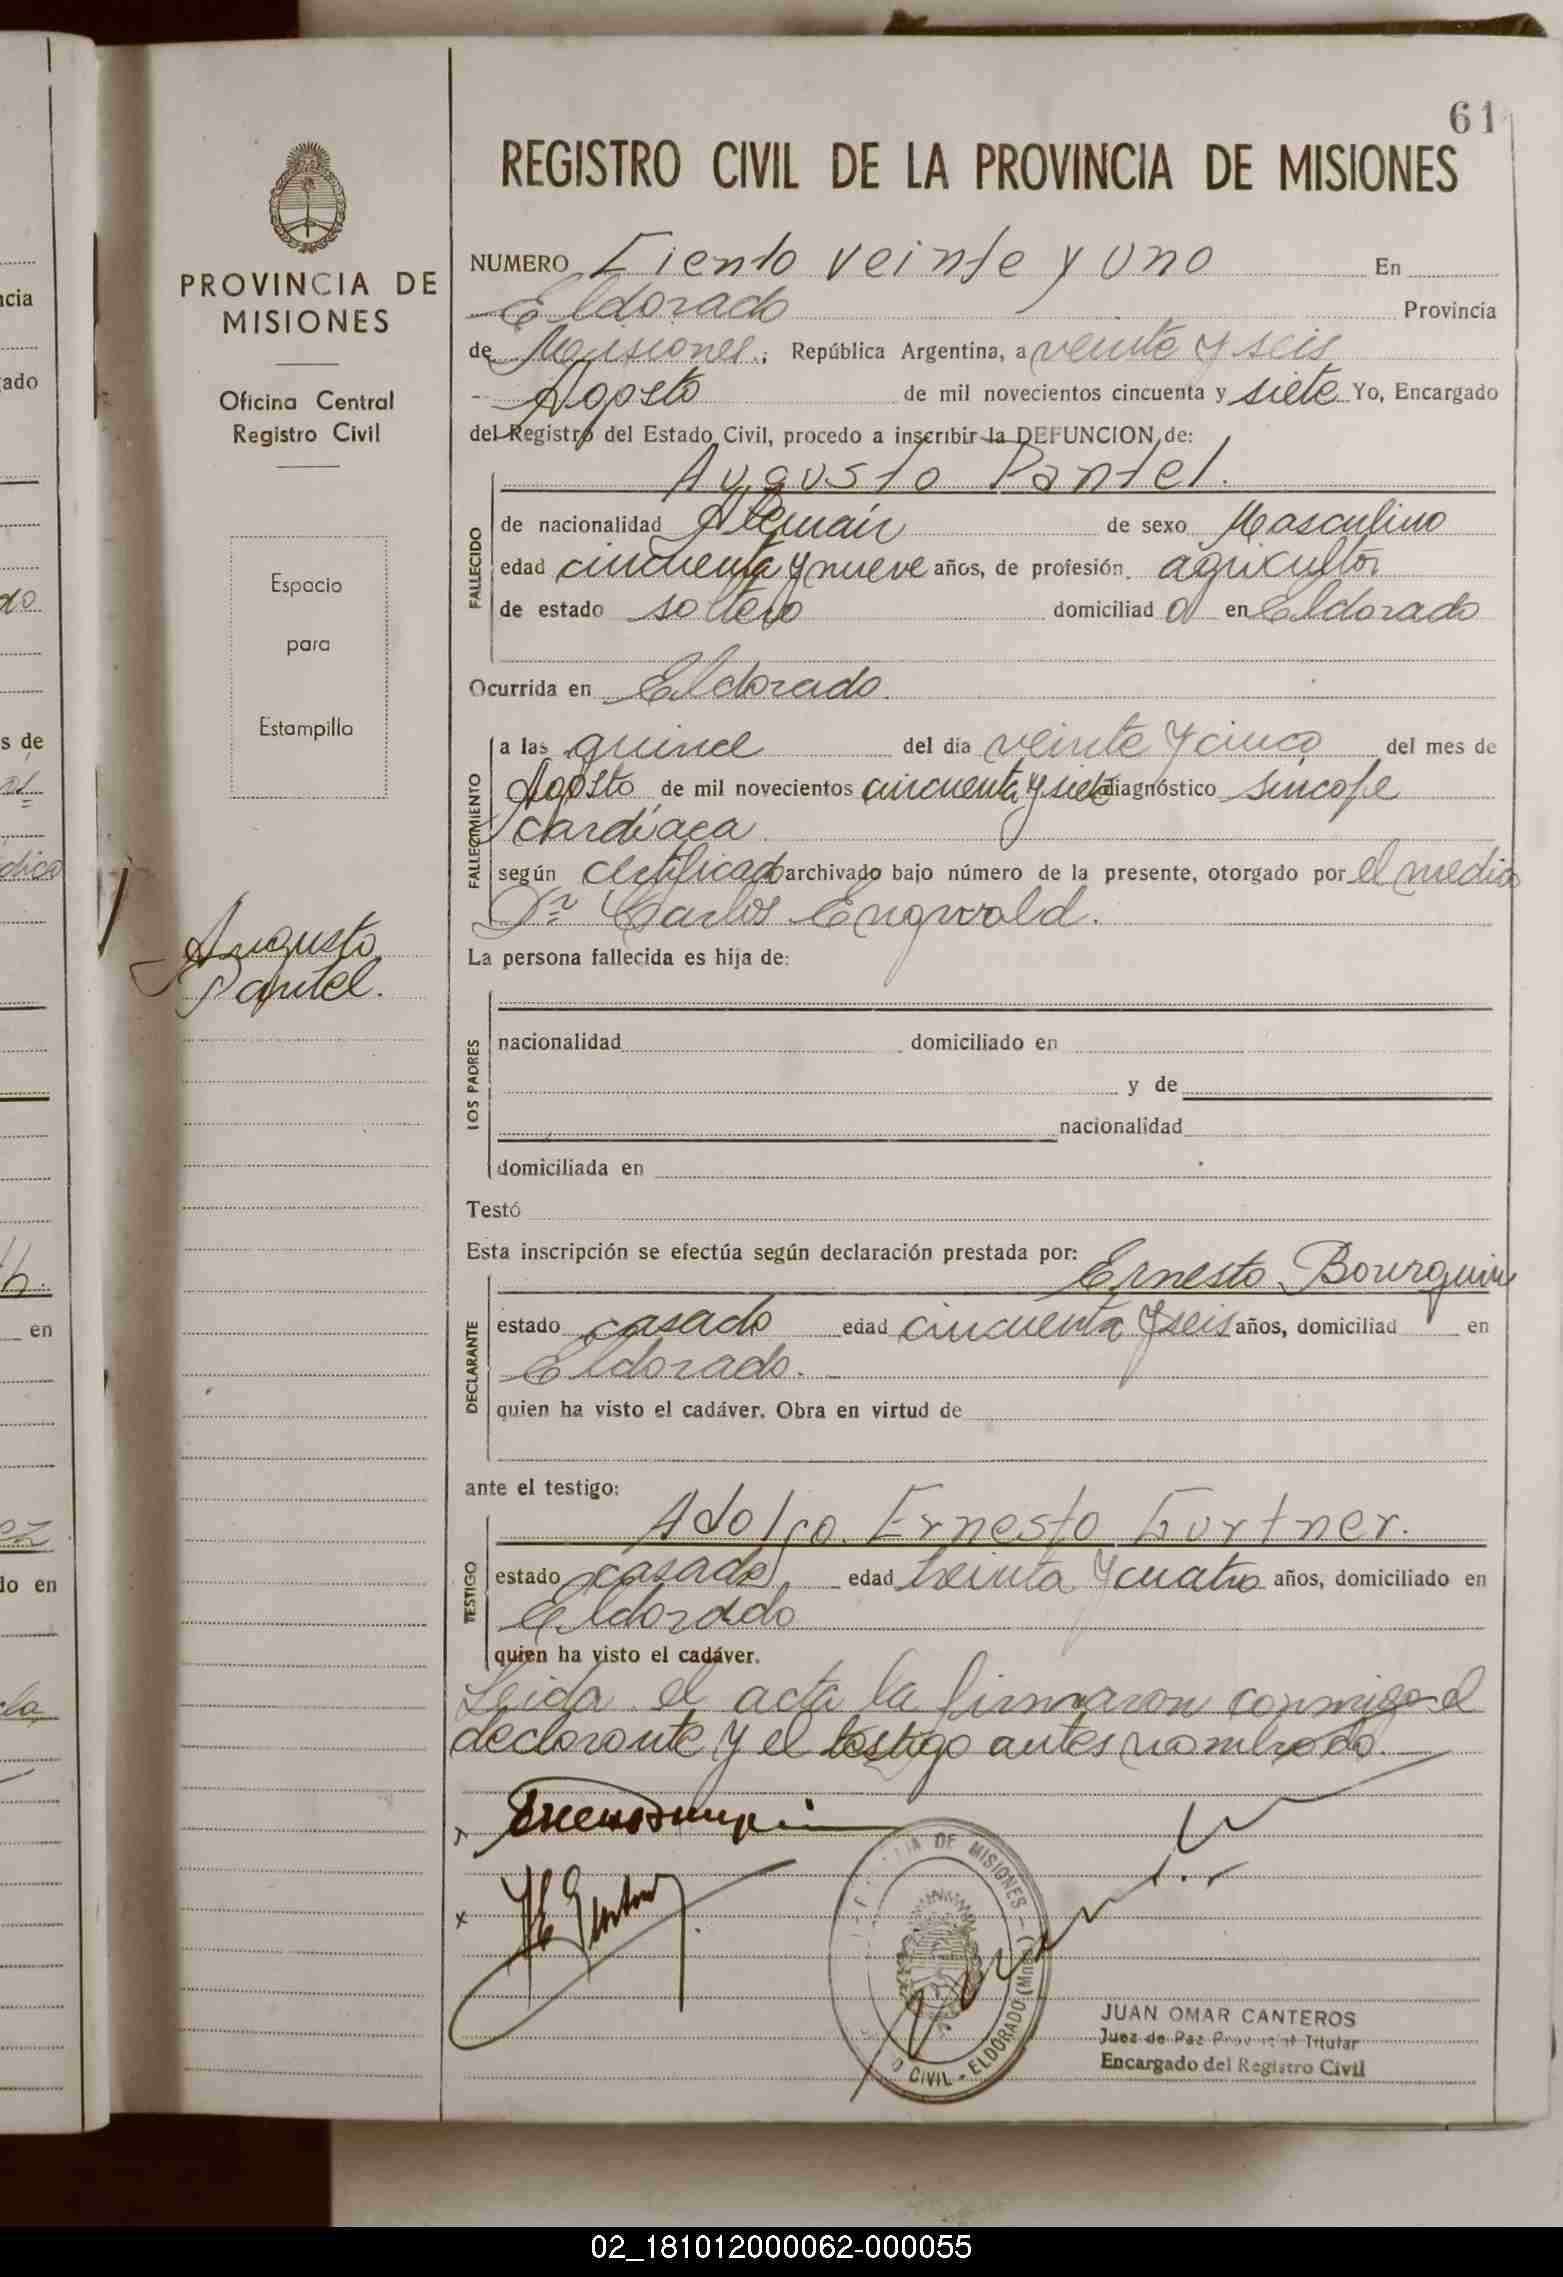 61
REGISTRO CIVIL DE LA PROVINCIA DE MISIONES
PROVINCIA DE
MISIONES
Oficina Central
Registro Civil
Espacio
para
Estampilla
Augusto
Pantel.
NUMERO Ciento veinte y uno En
Eldorado Provincia
de Misiones, República Argentina, a veinte y seis
Agosto de mil novecientos cincuenta y siete Yo, Encargado
del Registro del Estado Civil, procedo a inscribir la DEFUNCION de:
Augusto Pantel.
FALLECIDO
de nacionalidad Alemán de sexo Masculino
edad cincuenta y nueve años, de profesión agricultor
de estado soltero domiciliad o en Eldorado
Ocurrida en Eldorado.
FALLECIMIENTO
a las quince del día veinte y cinco del mes de
Agosto de mil novecientos cincuenta y siete diagnóstico sincope
cardíaca
según certificado archivado bajo número de la presente, otorgado por el medico
Dr Carlos Engwald.
La persona fallecida es hija de:
LOS PADRES
nacionalidad domiciliado en
y de
nacionalidad
domiciliada en
Testó
Esta inscripción se efectúa según declaración prestada por:
Ernesto Bourquin
DECLARANTE
estado casado edad cincuenta y seis años, domiciliad en
Eldorado.
quien ha visto el cadáver. Obra en virtud de
ante el testigo:
Adolfo Ernesto Gurtner.
TESTIGO
estado casado edad treinta y cuatro años, domiciliado en
Eldorado
quien ha visto el cadáver.
Leida el acta la firmaron conmigo el
declarante y el testigo antes nombrado.
DE MISIONES
CIVIL - ELDORADO (Mnes.)
JUAN OMAR CANTEROS
Juez de Paz Provincial Titular
Encargado del Registro Civil
02_181012000062-000055